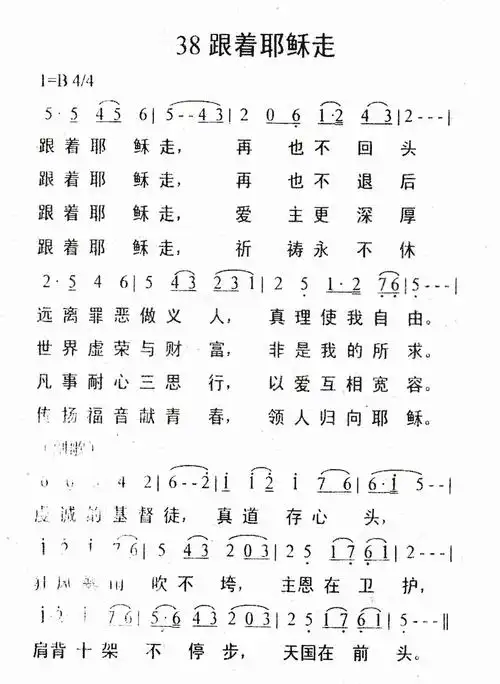 38 跟着耶稣走
1=B 4/4
5· 5 4 5 6 | 5 - - 4 3 | 2 0 6 1·2 4 3 | 2 - - - |
跟着耶 稣走， 再 也不 回 头
跟着耶 稣走， 再 也不 退 后
跟着耶 稣走， 爱 主更 深 厚
跟着耶 稣走， 祈 祷永 不 休
2· 5 4 6 | 5 4 3 2 3 1 | 2 5 1·2 7 6 | 5 - - - |
远离罪恶做义 人， 真理使我自由。
世界虚荣与财 富， 非是我的所求。
凡事耐心三思 行， 以爱互相宽容。
传扬福音献青 春， 领人归向耶稣。
5 4 2 | 6 - - 2 | 1 1 2 1 7 6 | 6·1 5 - - |
虔诚的基督徒， 真道 存心 头，
1 2 1 7 6 | 5 4 3 2 0 3 | 2 5 1 7 6 1 | 5 - - - |
吹不 垮， 主恩在 卫 护，
1· 2 1 7 6 | 5·6 4 3 2 0 3 | 2 5 1 7 6 1 | 5 - - - ||
肩背 十架 不 停步， 天国在 前 头。